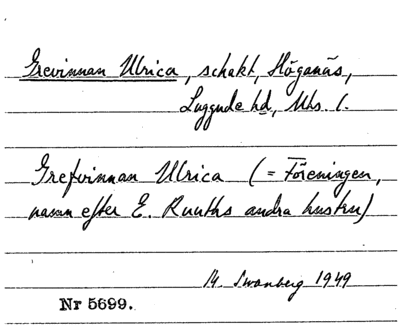 Grevinnan Ulrica, schakt, Höganäs,
Luggude hd, Mhs. l.
Grefvinnan Ulrica (= Föreningen,
namn efter E. Ruuths andra hustru)
H. Swanberg 1949
Nr 5699.